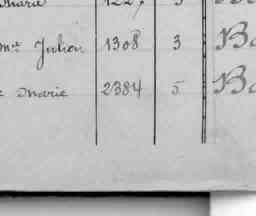 Marie 1227 3
Julien 1308 3 Ba
Marie 2384 5 Ba